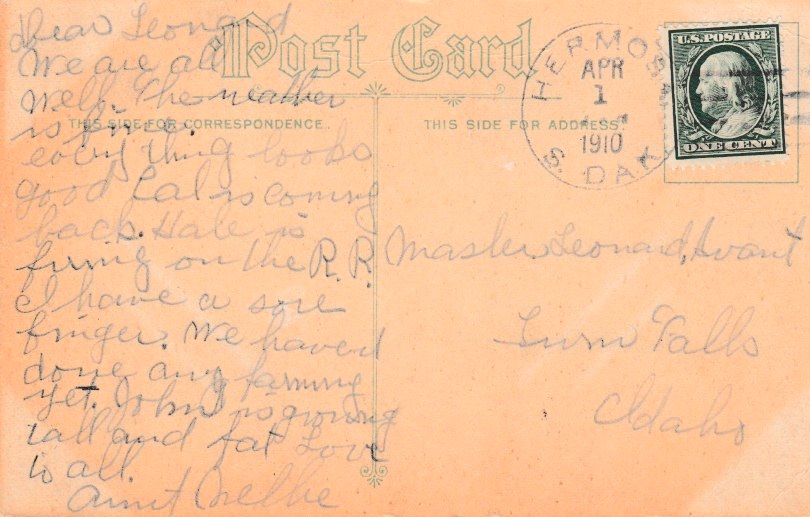 Post Card
THIS SIDE FOR CORRESPONDENCE.
THIS SIDE FOR ADDRESS.
HERMOSA
APR
1
1910
S. DAK.
U.S. POSTAGE
ONE CENT
Dear Leonard
We are all
well. The weather
is fine.
everything looks
good Cal is coming
back. Hale is
firing on the R.R.
I have a sore
finger. We havent
done any farming
yet. John is growing
tall and fat Love
to all.
Aunt Nellie
Master Leonard Avant
Twin Falls
Idaho